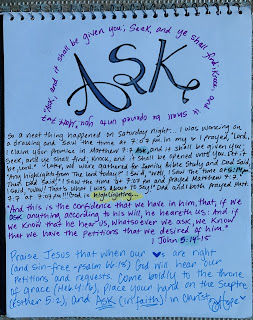 "Ask, and it shall be given you; Seek, and ye shall find; Knock, and it shall be opened unto you." Matt. 7:7
ASK
So a neat thing happened on Saturday night... I was working on
a drawing and saw the time at 7:07 pm. In my ♥ I prayed, "Lord,
I claim your promise in Matthew 7:7 Ask, and it shall be given you;
Seek, and ye shall find; Knock, and it shall be opened unto you. Let it
be, Lord." Later, we were gathered for family Bible Study and Dad said,
"Any highlights from The Lord today?" I said, "Well, I saw the time at
That Dad said "I saw the time at 7:07 pm and prayed Matthew 7:7."
I said, "Wow! That's what I was about to say!" Dad and I both prayed Matt.
7:7 at 7:07 pm!!! God is
"And this is the confidence that we have in him, that, if we
ask anything according to his will, he heareth us: And if
we know that he hear us, whatsoever we ask, we know
that we have the petitions that we desired of him."
1 John 5:14-15
Praise Jesus that when our ♥s are right
(and sin-free - psalm 66:18) God will hear our
petitions and requests. Come boldly to the throne
of grace (Heb 4:16), place your hand on the sceptre
(Esther 5:2), and ASK (in faith) in Christ.